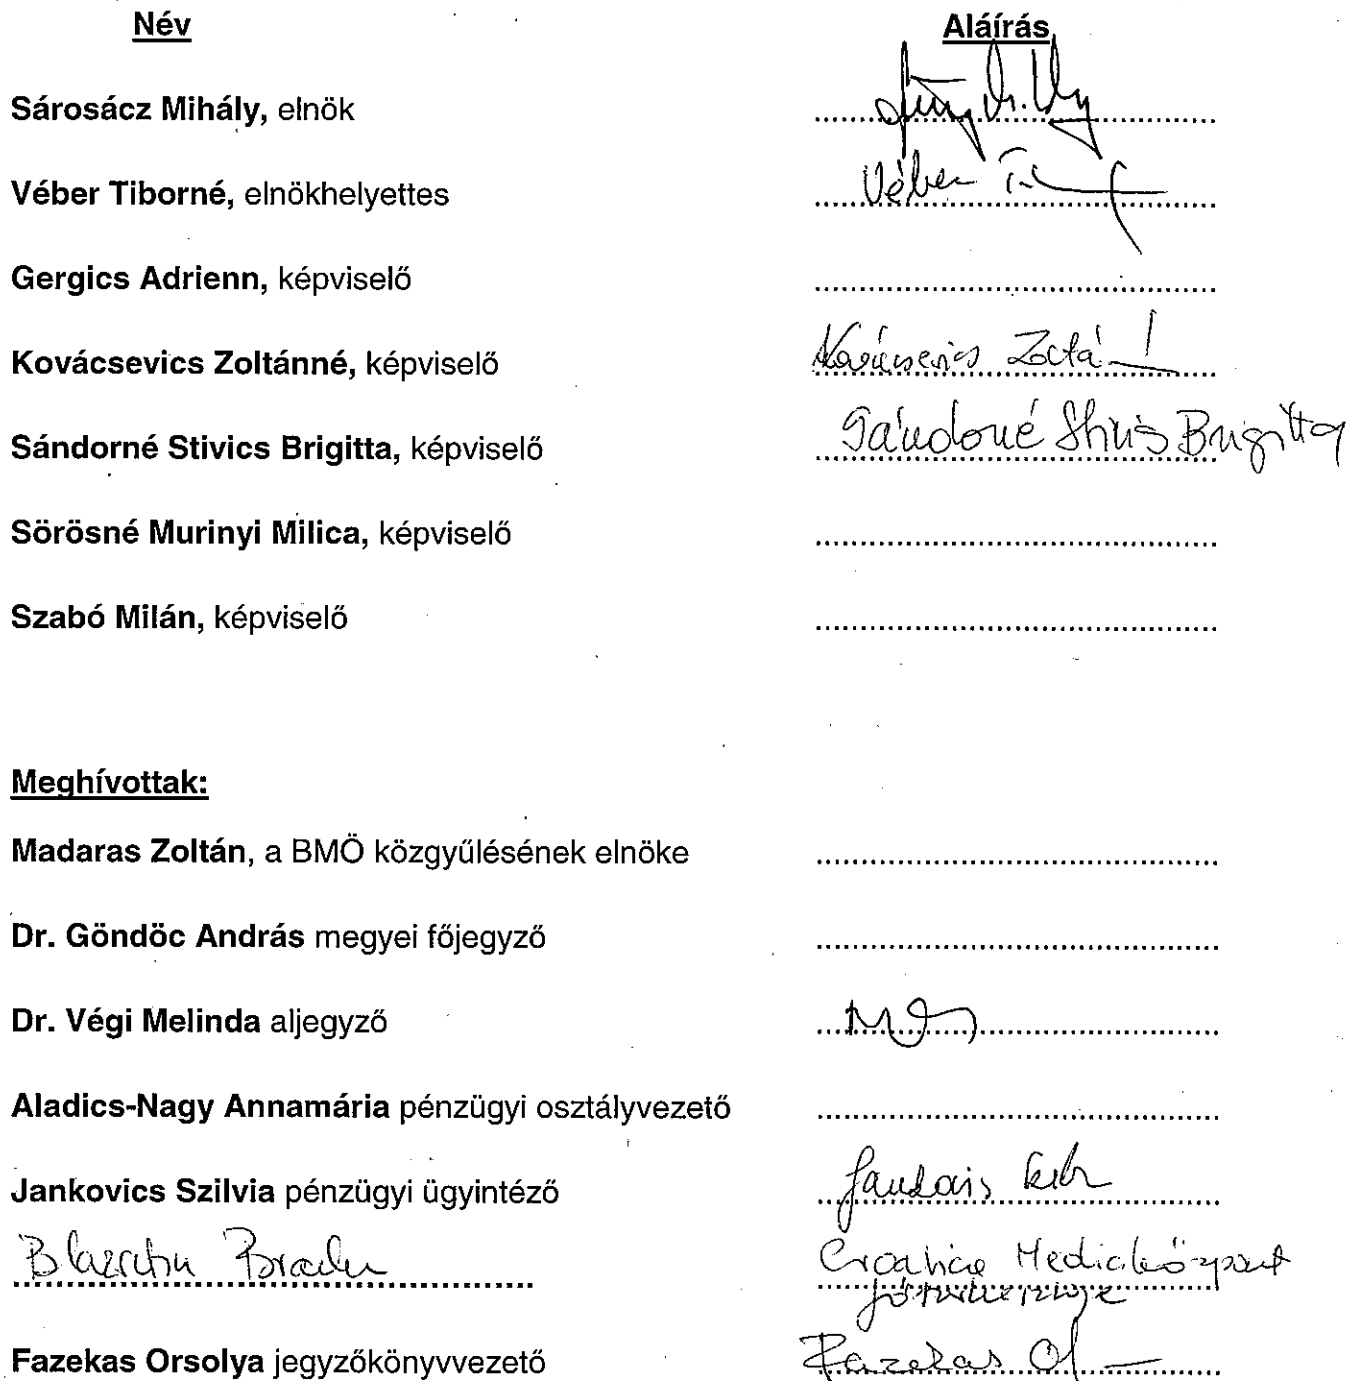 Név Aláírás
Sárosácz Mihály, elnök
Véber Tiborné, elnökhelyettes Véber
Gergics Adrienn, képviselő
Kovácsevics Zoltánné, képviselő Kovácsevics Zoltá
Sándorné Stivics Brigitta, képviselő Sándorné Stivics Brigitta
Sörösné Murinyi Milica, képviselő
Szabó Milán, képviselő
Meghívottak:
Madaras Zoltán, a BMÖ közgyűlésének elnöke
Dr. Göndöc András megyei főjegyző
Dr. Végi Melinda aljegyző
Aladics-Nagy Annamária pénzügyi osztályvezető
Jankovics Szilvia pénzügyi ügyintéző
Croatica Médiaközpont
Fazekas Orsolya jegyzőkönyvvezető Fazekas